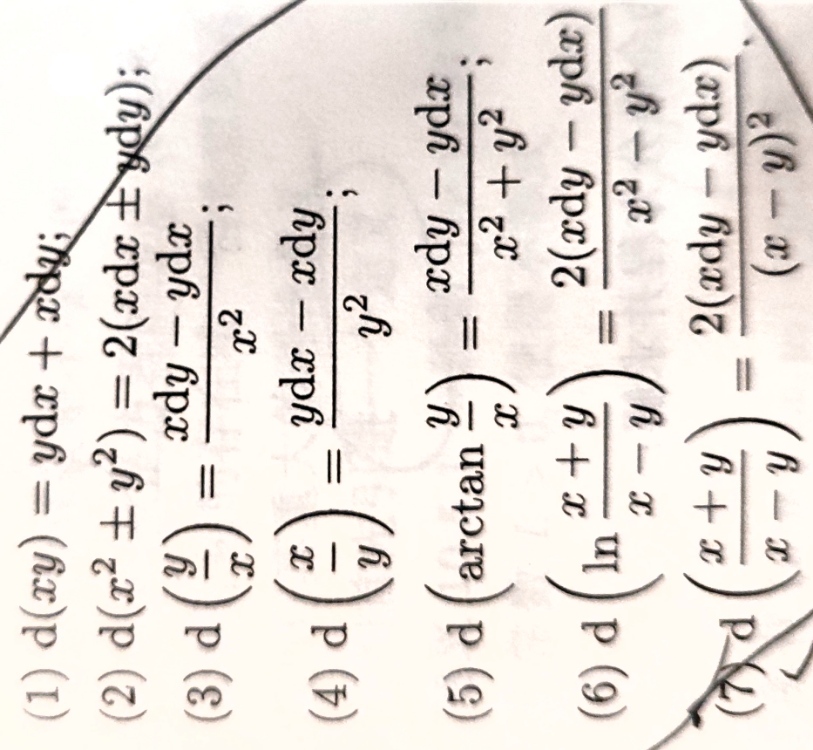 (1) d(xy) = ydx + xdy;
(2) d(x² ± y²) = 2(xdx ± ydy);
(3) d(y/x) = (xdy − ydx)/x²;
(4) d(x/y) = (ydx − xdy)/y²;
(5) d(arctan y/x) = (xdy − ydx)/(x² + y²);
(6) d(ln (x + y)/(x − y)) = 2(xdy − ydx)/(x² − y²)
(7) d((x + y)/(x − y)) = 2(xdy − ydx)/(x − y)².